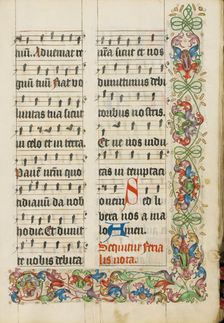 tuum. Adveniat re
gnu tuu Fiat vo
luntas tua sicut
in celo et in terra
Pane nrm
dianu da nobis
hodie Et dimit
te nobis debita
nra sicut et nos
dimittimus debi
toribus nostris.
Et ne nos indu
cas in temptati
onem Sed li
bera nos a ma
lo Amen.
Sequitur feria
lis nota.